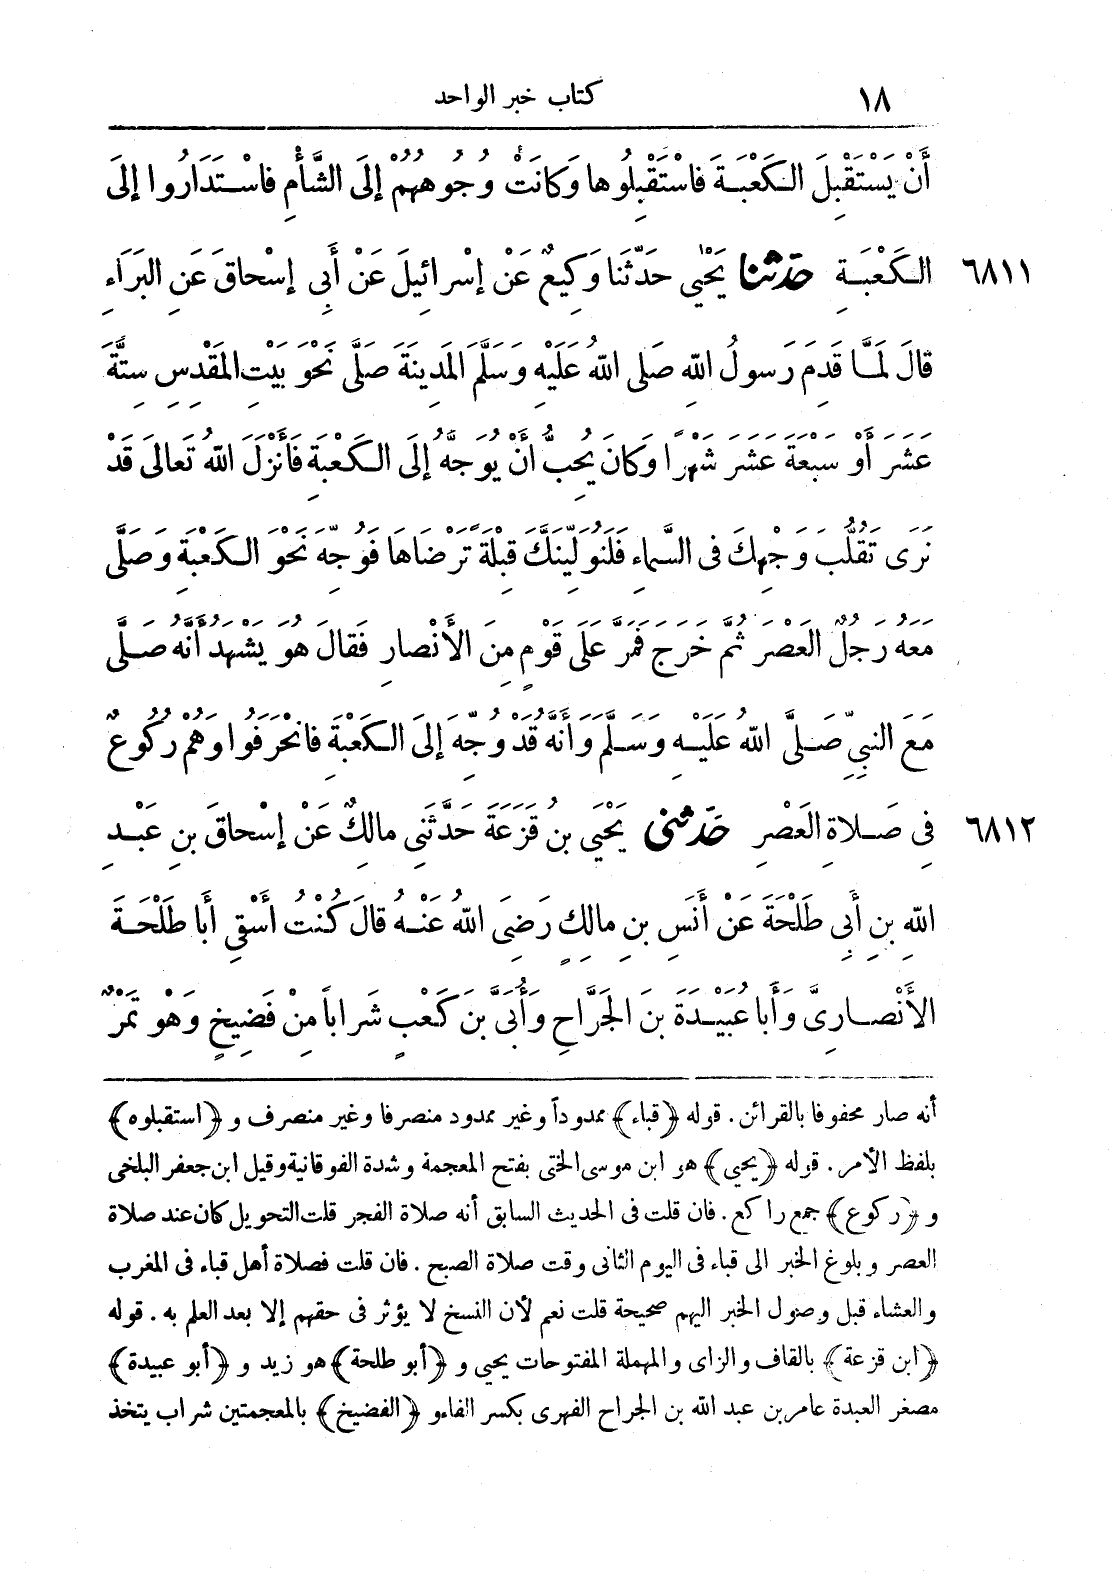 ١٨ كتاب خبر الواحد
أَنْ يَسْتَقْبِلَ الْكَعْبَةَ فَاسْتَقْبِلُوهَا وَكَانَتْ وُجُوهُهُمْ إِلَى الشَّأْمِ فَاسْتَدَارُوا إِلَى
٦٨١١ الْكَعْبَةِ حَدَّثَنَا يَحْيَى حَدَّثَنَا وَكِيعٌ عَنْ إِسْرَائِيلَ عَنْ أَبِي إِسْحَاقَ عَنِ الْبَرَاءِ
قَالَ لَمَّا قَدِمَ رَسُولُ اللهِ صَلَّى اللهُ عَلَيْهِ وَسَلَّمَ الْمَدِينَةَ صَلَّى نَحْوَ بَيْتِ الْمَقْدِسِ سِتَّةَ
عَشَرَ أَوْ سَبْعَةَ عَشَرَ شَهْرًا وَكَانَ يُحِبُّ أَنْ يُوَجَّهَ إِلَى الْكَعْبَةِ فَأَنْزَلَ اللهُ تَعَالَى قَدْ
نَرَى تَقَلُّبَ وَجْهِكَ فِي السَّمَاءِ فَلَنُوَلِّيَنَّكَ قِبْلَةً تَرْضَاهَا فَوُجِّهَ نَحْوَ الْكَعْبَةِ وَصَلَّى
مَعَهُ رَجُلٌ الْعَصْرَ ثُمَّ خَرَجَ فَمَرَّ عَلَى قَوْمٍ مِنَ الْأَنْصَارِ فَقَالَ هُوَ يَشْهَدُ أَنَّهُ صَلَّى
مَعَ النَّبِيِّ صَلَّى اللهُ عَلَيْهِ وَسَلَّمَ وَأَنَّهُ قَدْ وُجِّهَ إِلَى الْكَعْبَةِ فَانْحَرَفُوا وَهُمْ رُكُوعٌ
٦٨١٢ فِي صَلَاةِ الْعَصْرِ حَدَّثَنِي يَحْيَى بْنُ قَزَعَةَ حَدَّثَنِي مَالِكٌ عَنْ إِسْحَاقَ بْنِ عَبْدِ
اللهِ بْنِ أَبِي طَلْحَةَ عَنْ أَنَسِ بْنِ مَالِكٍ رَضِيَ اللهُ عَنْهُ قَالَ كُنْتُ أَسْقِي أَبَا طَلْحَةَ
الْأَنْصَارِيَّ وَأَبَا عُبَيْدَةَ بْنَ الْجَرَّاحِ وَأُبَيَّ بْنَ كَعْبٍ شَرَابًا مِنْ فَضِيخٍ وَهُوَ تَمْرٌ
أنه صار محفوفا بالقرائن. قوله ﴿قباء﴾ ممدوداً وغير ممدود منصرفا وغير منصرف و ﴿استقبلوه﴾
بلفظ الأمر. قوله ﴿يحيى﴾ هو ابن موسى الختى بفتح المعجمة وشدة الفوقانية وقيل ابن جعفر البلخى
و ﴿ركوع﴾ جمع راكع. فان قلت فى الحديث السابق أنه صلاة الفجر قلت التحويل كان عند صلاة
العصر وبلوغ الخبر الى قباء فى اليوم الثانى وقت صلاة الصبح. فان قلت فصلاة أهل قباء فى المغرب
والعشاء قبل وصول الخبر اليهم صحيحة قلت نعم لأن النسخ لا يؤثر فى حقهم إلا بعد العلم به. قوله
﴿ابن قزعة﴾ بالقاف والزاى والمهملة المفتوحات يحيى و ﴿أبو طلحة﴾ هو زيد و ﴿أبو عبيدة﴾
مصغر العبدة عامر بن عبد الله بن الجراح الفهرى بكسر الفاء و ﴿الفضيخ﴾ بالمعجمتين شراب يتخذ